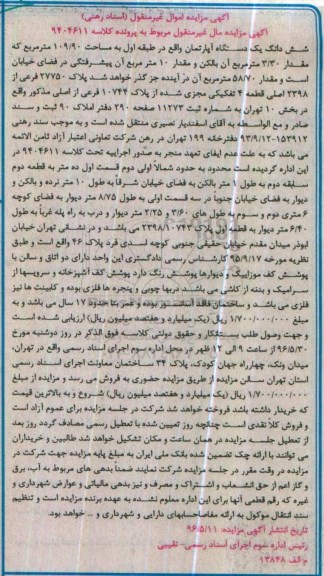 آگهی مزایده اموال غیرمنقول (اسناد رهنی)
آگهی مزایده مال غیرمنقول مربوط به پرونده کلاسه ۹۴۰۴۶۱۱
شش دانگ یک دستگاه آپارتمان واقع در طبقه اول به مساحت ۱۰۹/۹۰ مترمربع که
مقدار ۳/۳۰ مترمربع آن بالکن و مقدار ۱۰ متر مربع آن پیشرفتگی در فضای خیابان
است و مقدار ۵۸۷۰ مترمربع آن در آینده جز گذر خواهد شد پلاک ۲۷۷۵۰ فرعی از
۲۳۹۸ اصلی قطعه ۴ تفکیکی مجزی شده از پلاک ۱۰۷۴۴ فرعی از اصلی مذکور واقع
در بخش ۱۰ تهران به شماره ثبت ۱۱۲۷۳ صفحه ۲۹۰ دفتر املاک ۹۰ ثبت و سند
صادر و مع الواسطه به آقای اسفندیار نصیری منتقل شده است و به موجب سند رهنی
۱۵۳۹۱۲-۹۳/۹/۱۲ دفترخانه ۱۹۹ تهران در رهن شرکت تعاونی اعتبار آزاد ثامن الائمه
می باشد که به علت عدم ایفای تعهد منجر به صدور اجراییه تحت کلاسه ۹۴۰۴۶۱۱ در
این اداره گردیده است محدود به حدود شمالاً اولی دوم قسمت اول ده متر به قطعه دوم
سابقه دوم به طول ۱ متر بالکن به فضای خیابان شرقاً به طول ۱۰ متر نرده و بالکن و
دیوار به فضای خیابان جنوباً در سه قسمت اولی به طول ۸/۷۵ متر دیوار به فضای کوچه
۶ متری دوم و سوم به طول های ۳/۶۰ و ۲/۲۵ متر دیوار و درب به راه پله غرباً به طول
۶/۴۰ متر دیوار به قطعه اول پلاک ۲۳۹۸/۱۰۷۴۳ می باشد و در نشانی تهران خیابان
ابوذر میدان مقدم خیابان حقیقی جنوبی کوچه اسدی فرد پلاک ۴۶ واقع است و طبق
نظریه مورخه ۹۵/۹/۱۷ کارشناس رسمی دادگستری این واحد دارای دو اتاق و سالن با
پوشش کف موزاییک و دیوارها پوشش رنگ دارد پوشش کف آشپزخانه و سرویسها از
سرامیک و بدنه از کاشی می باشد دربها چوبی و پنجره ها فلزی بوده و کابینت ها نیز
فلزی می باشد و ساختمان فاقد آسانسور بوده و عمر بنا حدود ۱۷ سال می باشد و به
مبلغ ۱/۷۰۰/۰۰۰/۰۰۰ ریال (یک میلیارد و هفتصد میلیون ریال) ارزیابی شده است
و جهت وصول طلب بستانکار و حقوق دولتی کلاسه فوق الذکر در روز دوشنبه مورخ
۹۶/۵/۳۰ از ساعت ۹ الی ۱۲ ظهر در محل اداره سوم اجرای اسناد رسمی واقع در تهران،
میدان ونک، چهارراه جهان کودک، پلاک ۳۴ ساختمان معاونت اجرای اسناد رسمی
استان تهران سالن مزایده از طریق مزایده حضوری به فروش می رسد و مزایده از مبلغ
۱/۷۰۰/۰۰۰/۰۰۰ ریال (یک میلیارد و هفتصد میلیون ریال) شروع و به بالاترین قیمت
که خریدار داشته باشد فروخته خواهد شد شرکت در جلسه مزایده برای عموم آزاد است
و فروش کلاً نقدی است چنانچه روز تعیین شده با تعطیل رسمی مصادف گردد روز بعد
از تعطیل جلسه مزایده در همان ساعت و مکان تشکیل خواهد شد طالبین و خریداران
می توانند با ارائه چک تضمین شده بانک ملی ایران به مبلغ پایه مزایده جهت شرکت در
مزایده در وقت مقرر در جلسه مزایده شرکت نمایند ضمناً بدهی های مربوط به آب، برق
و گاز اعم از حق انشعاب و اشتراک و مصرف و نیز بدهی مالیاتی و عوارض شهرداری و
غیره که رقم قطعی آنها برای این اداره معلوم نشده به عهده برنده مزایده است و تنظیم
سند انتقال موکول به ارائه مفاصاحسابهای دارایی و شهرداری و ... خواهد بود.
تاریخ انتشار آگهی مزایده: ۹۶/۵/۱۱
رئیس اداره سوم اجرای اسناد رسمی- نقیبی
م الف ۱۳۸۴۸